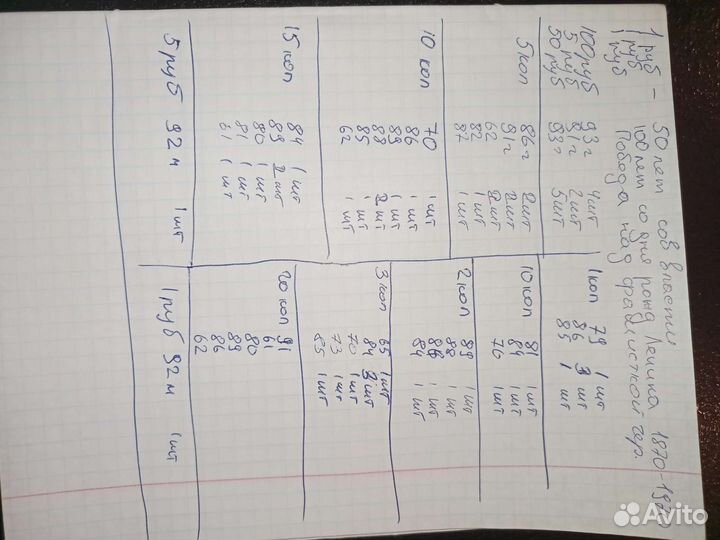 1 руб - 50 лет сов власти
1 руб 100 лет со дня рожд Ленина 1870-1970
1 руб Победа над фашисткой гер.
100 руб 93 г 4 шт
5 руб 91 г 2 шт
50 руб 93 г 5 шт
5 коп 86 г 2 шт
91 г 2 шт
62 2 шт
82 1 шт
87 1 шт
10 коп 70 1 шт
86 1 шт
89 1 шт
88 2 шт
85 1 шт
62 1 шт
15 коп 84 1 шт
89 2 шт
80 1 шт
81 1 шт
61 1 шт
5 руб 92 м 1 шт
1 коп 79 1 шт
86 3 шт
85 1 шт
10 коп 81 1 шт
84 1 шт
76 1 шт
2 коп 89 1 шт
88 1 шт
86 1 шт
84 1 шт
3 коп 65 1 шт
84 3 шт
70 1 шт
73 1 шт
85 1 шт
20 коп 91
61
80
89
86
62
1 руб 92 м 1 шт
Avito